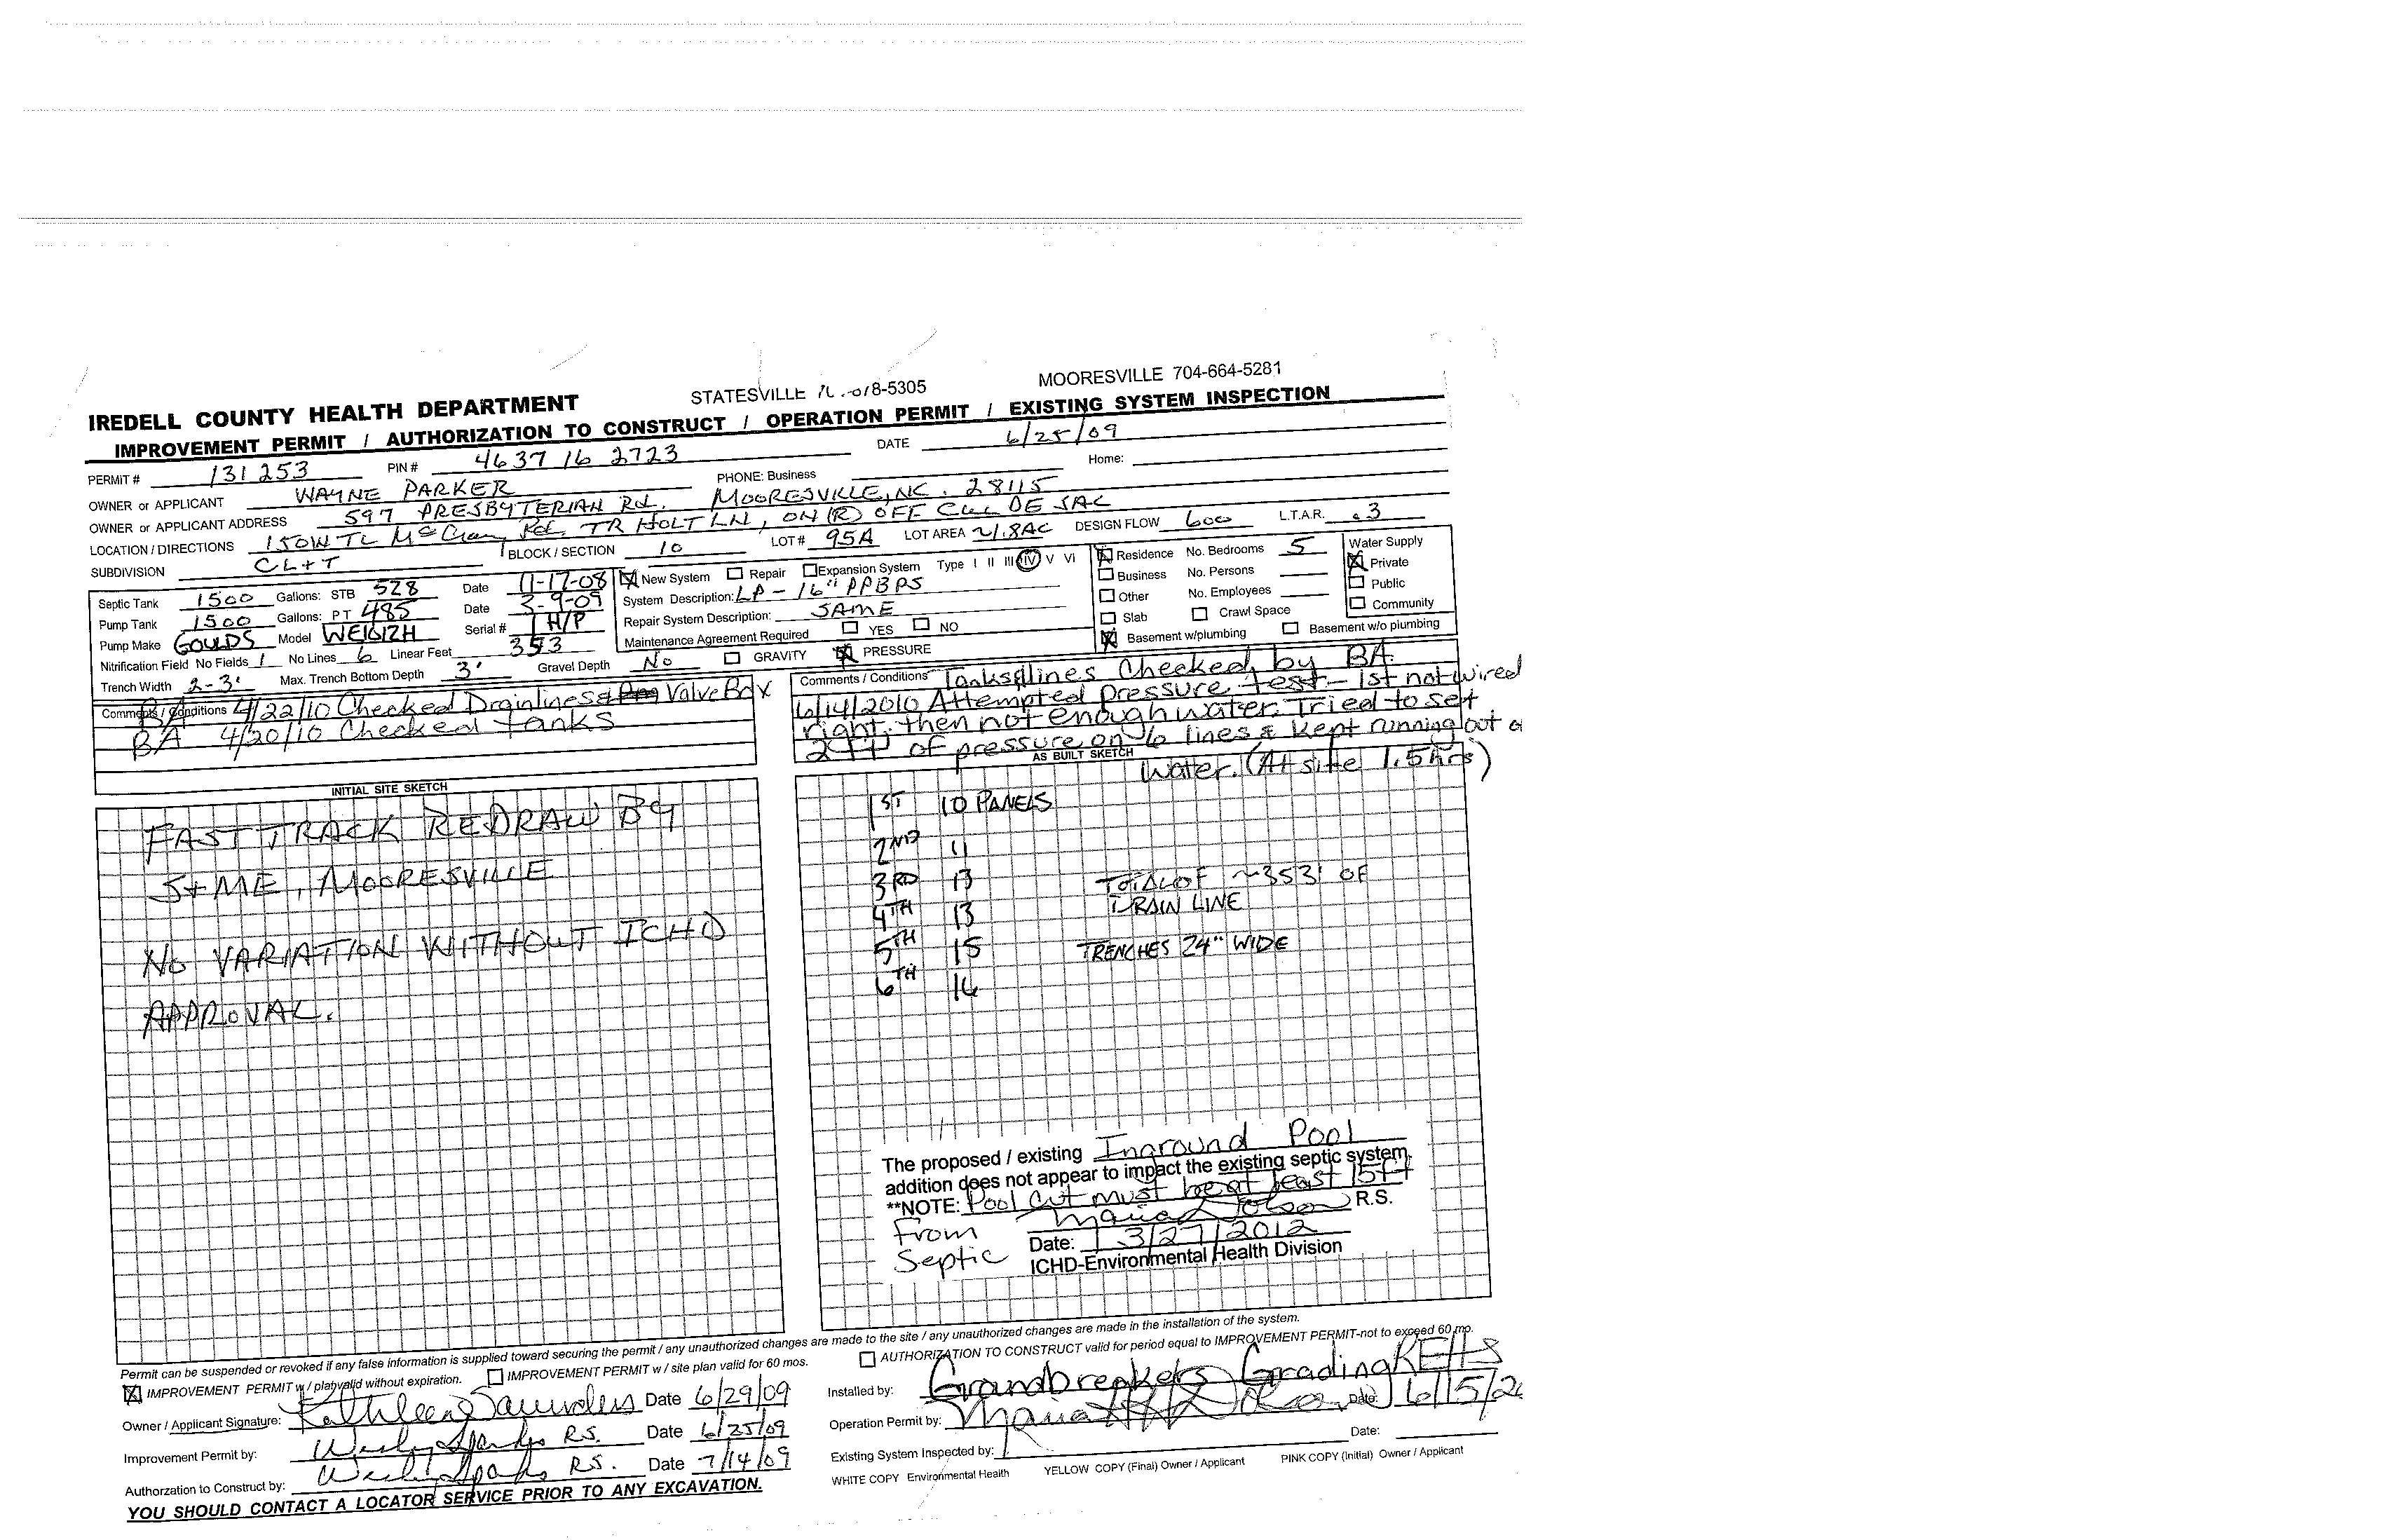 STATESVILLE 7 -878-5305 MOORESVILLE 704-664-5281
IREDELL COUNTY HEALTH DEPARTMENT
IMPROVEMENT PERMIT / AUTHORIZATION TO CONSTRUCT / OPERATION PERMIT / EXISTING SYSTEM INSPECTION
PERMIT # 131253 PIN # 4637 16 2723 DATE 6/25/09
OWNER or APPLICANT WAYNE PARKER PHONE: Business Home:
OWNER or APPLICANT ADDRESS 597 PRESBYTERIAN RD. MOORESVILLE, NC. 28115
LOCATION / DIRECTIONS 150W TL Rd, TR HOLT LN, ON (R) OFF CUL DE SAC
SUBDIVISION CL+T BLOCK / SECTION 10 LOT # 95A LOT AREA ~1.8AC DESIGN FLOW 600 L.T.A.R. .3
Septic Tank 1500 Gallons: STB 528 Date 11-17-08
Pump Tank 1500 Gallons: PT 485 Date 3-9-09
Pump Make GOULDS Model Serial # 1 H/P
Nitrification Field No Fields 1 No Lines 6 Linear Feet 353
Trench Width 2-3' Max. Trench Bottom Depth 3' Gravel Depth No
New System Repair Expansion System Type I II III IV V VI
System Description: LP - 16" PPBPS
Repair System Description: SAME
Maintenance Agreement Required YES NO
GRAVITY PRESSURE
Residence No. Bedrooms 5
Business No. Persons
Other No. Employees
Slab Crawl Space
Basement w/plumbing Basement w/o plumbing
Water Supply
Private
Public
Community
Comments / Conditions BA 4/22/10 Checked Drainlines & Valve Box
BA 4/20/10 Checked tanks
Comments / Conditions Tanks & lines Checked by BA.
6/14/2010 Attempted pressure test - 1st not wired
right, then not enough water. Tried to set
2 ft of pressure on 6 lines & kept running out of
water. (At site 1.5 hrs)
INITIAL SITE SKETCH
FAST TRACK REDRAW BY
S+ME, MOORESVILLE
NO VARIATION WITHOUT ICHD
APPROVAL.
AS BUILT SKETCH
1ST 10 PANELS
2ND 11
3RD 13
4TH 13
5TH 15
6TH 16
TOTAL OF ~353' OF
DRAIN LINE
TRENCHES 24" WIDE
The proposed / existing Inground Pool
addition does not appear to impact the existing septic system.
**NOTE: Pool cut must be at least 15ft
From R.S.
Septic Date: 3/27/2012
ICHD-Environmental Health Division
Permit can be suspended or revoked if any false information is supplied toward securing the permit / any unauthorized changes are made to the site / any unauthorized changes are made in the installation of the system.
IMPROVEMENT PERMIT w / plat valid without expiration. IMPROVEMENT PERMIT w / site plan valid for 60 mos.
AUTHORIZATION TO CONSTRUCT valid for period equal to IMPROVEMENT PERMIT-not to exceed 60 mo.
Owner / Applicant Signature: Kathleen Saunders Date 6/29/09
Improvement Permit by: Wesley Sparks R.S. Date 6/25/09
Authorzation to Construct by: Wesley Sparks R.S. Date 7/14/09
YOU SHOULD CONTACT A LOCATOR SERVICE PRIOR TO ANY EXCAVATION.
Installed by: Grandbreakers Grading
Operation Permit by: Date: 6/15/20
Existing System Inspected by: Date:
WHITE COPY Environmental Health YELLOW COPY (Final) Owner / Applicant PINK COPY (Initial) Owner / Applicant